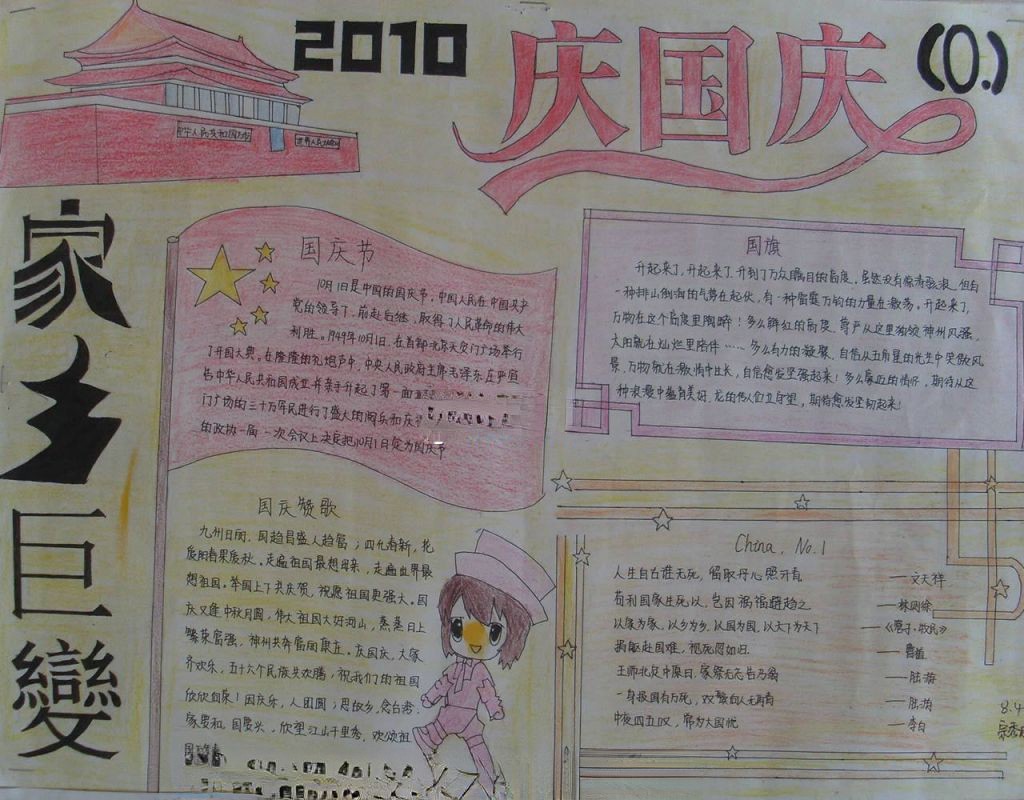 2010
庆国庆
(0.)
中华人民共和国万岁
世界人民大团结
家乡巨變
国庆节
10月1日是中国的国庆节,中国人民在中国共产
党的领导下,前赴后继,取得了人民革命的伟大
利胜。1949年10月1日,在首都北京天安门广场举行
了开国大典。在隆隆的礼炮声中,中央人民政府主席毛泽东庄严宣
告中华人民共和国成立并亲手升起了第一面
门广场的三十万军民进行了盛大的阅兵和庆
的政协一届一次会议上决定把10月1日定为国庆节
国旗
升起来了,升起来了,升到了万众瞩目的高度,虽然没有像青松浪,但有
一种排山倒海的气势在起伏,有一种雷霆万钧的力量在激荡。升起来了,
万物在这个高度里陶醉!多么鲜红的高度,尊严从这里独领神州风骚,
太阳就在灿烂里陪伴……多么有力的凝聚,自信从五角星的光芒中笑傲风
景,万物就在激情中生长,自信愈发坚强起来!多么靠近的情怀,期待从这
种浪漫中蕴育美好,龙的传人伫立守望,期待愈发坚韧起来!
国庆赞歌
九州日丽,国趋昌盛人趋富;四化春新,花
庆阳春果庆秋。走遍祖国最想母亲,走遍世界最
想祖国。举国上下共庆贺,祝愿祖国更强大。国
庆又逢中秋月圆,伟大祖国大好河山,蒸蒸日上
繁荣富强,神州共奔富国康立。庆国庆,大家
齐欢乐,五十六个民族共欢腾,祝我们的祖国
欣欣向荣!国庆乐,人团圆;思故乡,念台湾.
家要和,国要兴,欣望江山千里秀,欢颂祖
China, No.1
人生自古谁无死,留取丹心照汗青 ——文天祥
苟利国家生死以,岂因祸福避趋之 ——林则徐
以家为家,以乡为乡,以国为国,以天下为天下 ——《管子·牧民》
捐躯赴国难,视死忽如归 ——曹植
王师北定中原日,家祭无忘告乃翁 ——陆游
一身报国有万死,双鬓向人无再青 ——陆游
中夜四五叹,常为大国忧 ——李白
8.4